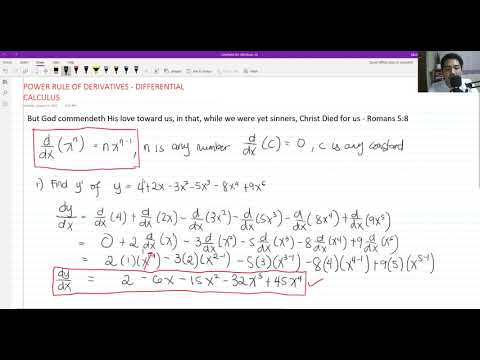 POWER RULE OF DERIVATIVES - DIFFERENTIAL
CALCULUS
But God commendeth His love toward us, in that, while we were yet sinners, Christ Died for us - Romans 5:8
d/dx (xⁿ) = nxⁿ⁻¹, n is any number d/dx (c) = 0, c is any constant
1) Find y' of y = 4+2x-3x²-5x³-8x⁴+9x⁵
dy/dx = d/dx (4) + d/dx (2x) - d/dx (3x²) - d/dx (5x³) - d/dx (8x⁴) + d/dx (9x⁵)
= 0 + 2 d/dx (x) - 3 d/dx (x²) - 5 d/dx (x³) - 8 d/dx (x⁴) + 9 d/dx (x⁵)
= 2(1)(x¹⁻¹) - 3(2)(x²⁻¹) - 5(3)(x³⁻¹) - 8(4)(x⁴⁻¹) + 9(5)(x⁵⁻¹)
dy/dx = 2 - 6x - 15x² - 32x³ + 45x⁴ ✓